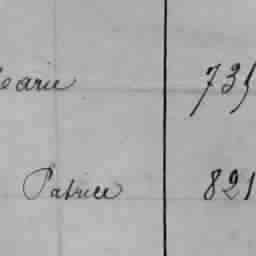 Marie 735
Patrice 821